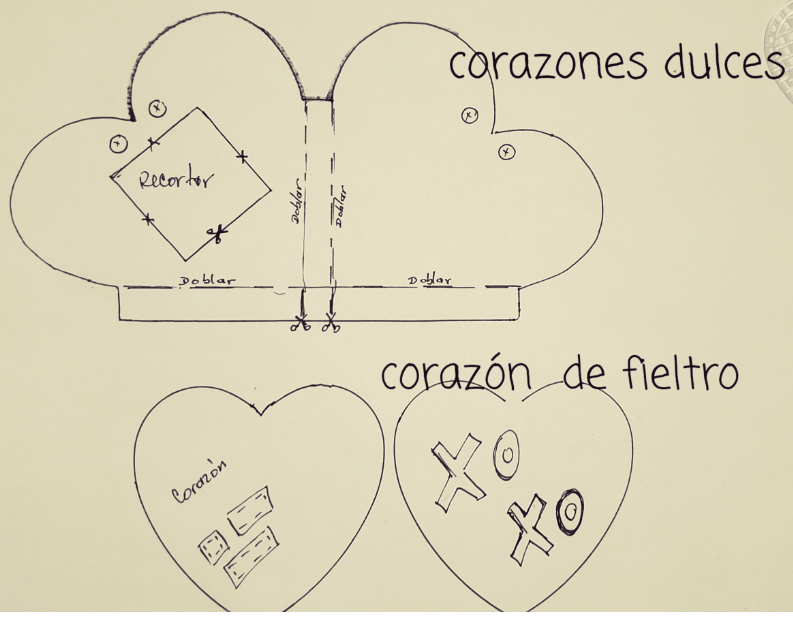 corazones dulces
Recortar
Doblar
Doblar
Doblar
Doblar
corazón de fieltro
Corazón
XO
XO